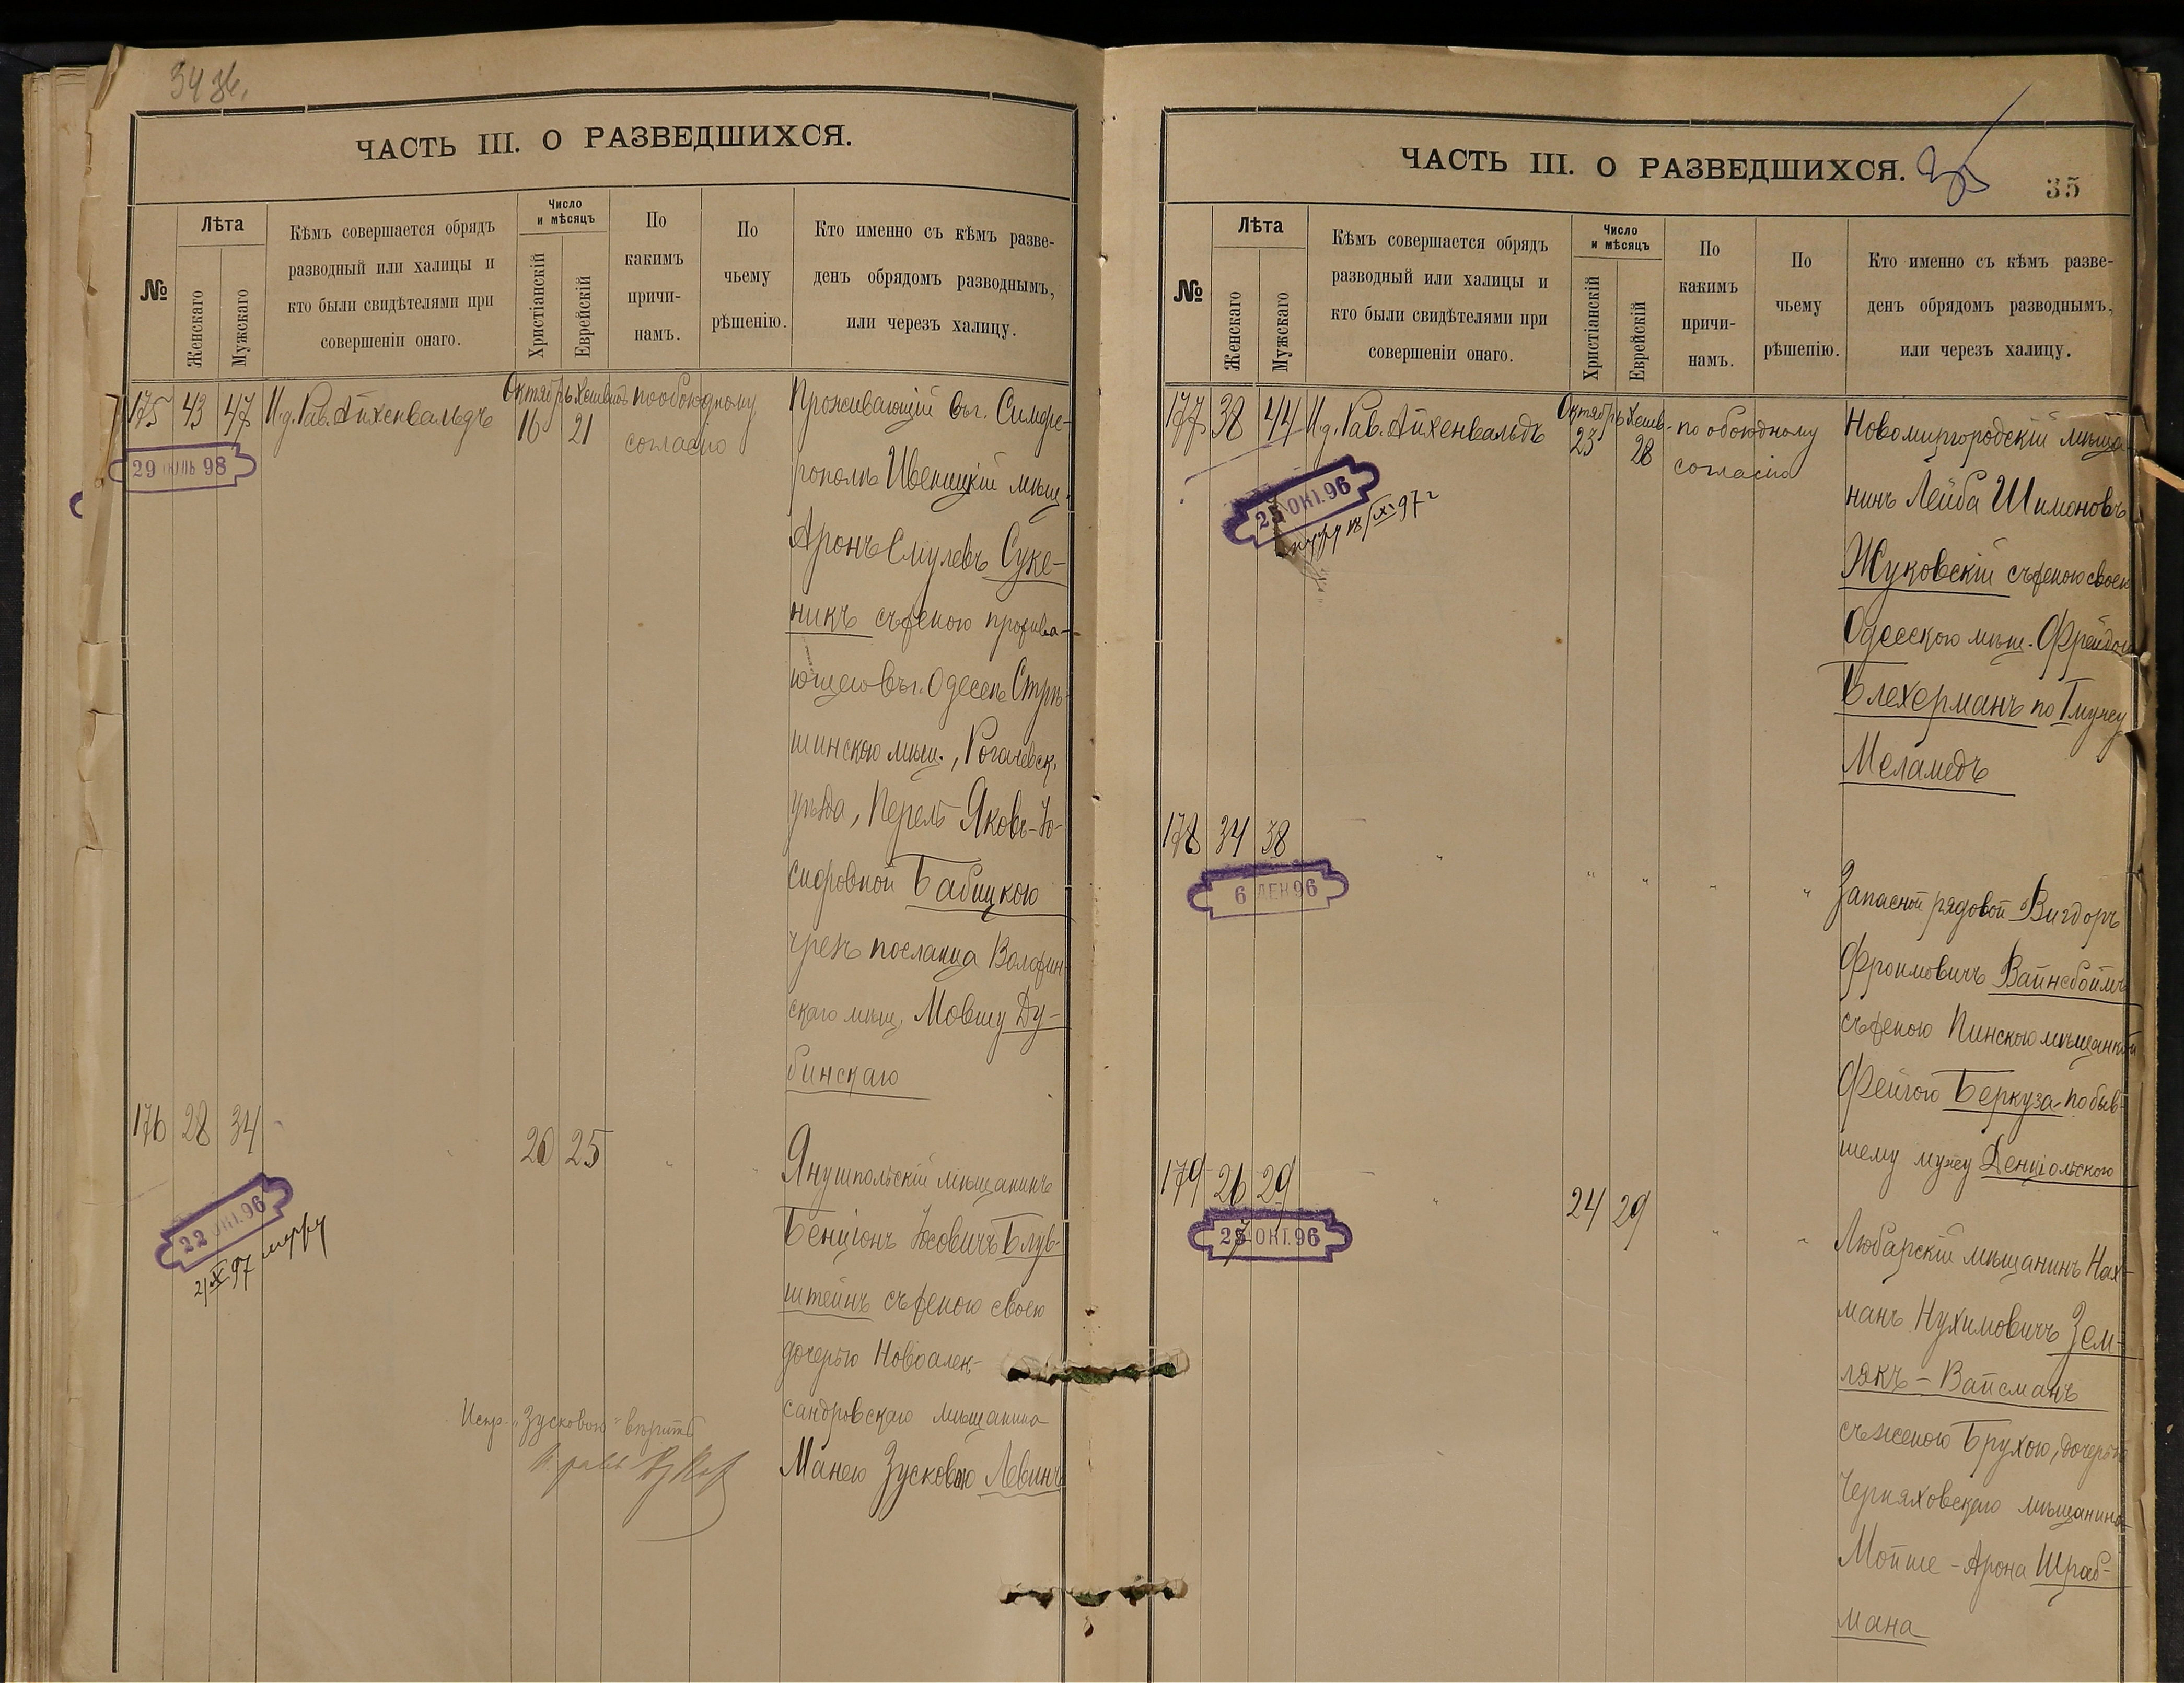 ЧАСТЬ III. О РАЗВЕДШИХСЯ.
№
Лѣта
Женскаго
Мужскаго
Кѣмъ совершается обрядъ
разводный или халицы и
кто были свидѣтелями при
совершеніи онаго.
Число
и мѣсяцъ
Христіанскій
Еврейскій
По
какимъ
причи-
намъ.
По
чьему
рѣшенію.
Кто именно съ кѣмъ разве-
денъ обрядомъ разводнымъ,
или черезъ халицу.
175 43 47 И.д. Рав. Айхенвальдъ Октябрь 16 21 по обоюдному
согласію
29 98
Проживающій въ г. Симфе-
рополѣ Ивеницкій мѣщ.
Аронъ Смулевъ Суке-
никъ съ женою прожива-
ющею въ г. Одессѣ Стрѣ-
шинскою мѣщ., Рогачевск.
уѣзда, Перель Яковъ-Іо-
сифовной Бабицкою
чрезъ посланца Воложин-
скаго мѣщ. Мовшу Ду-
бинскаго
176 28 34 " 20 25 " "
22 ОКТ.96
21/X 97
Янушпольскій мѣщанинъ
Бенціонъ Іосовичъ Блув-
штейнъ съ женою своею
дочерью Новоалек-
сандровскаго мѣщанина
Манею Зусковою Левинъ
Испр. "Зусковою" вѣрить
ЧАСТЬ III. О РАЗВЕДШИХСЯ.
35
35
№
Лѣта
Женскаго
Мужскаго
Кѣмъ совершается обрядъ
разводный или халицы и
кто были свидѣтелями при
совершеніи онаго.
Число
и мѣсяцъ
Христіанскій
Еврейскій
По
какимъ
причи-
намъ.
По
чьему
рѣшенію.
Кто именно съ кѣмъ разве-
денъ обрядомъ разводнымъ,
или черезъ халицу.
177 38 44 И.д. Рав. Айхенвальдъ Октябрь 23 Хешв. 28 по обоюдному
согласію
ОКТ.96
18/XI 97 г
Новомиргородскій мѣща-
нинъ Лейба Шимоновъ
Жуковскій съ женою своею
Одесскою мѣщ. Фрейдою
Блехерманъ по I мужу
Меламедъ
178 34 38 " " " " "
6 ДЕК 96
Запасной рядовой Вигдоръ
Фроимовичъ Вайнсбоймъ
съ женою Пинскою мѣщанкой
Фейгою Беркуза по быв-
шему мужу Денціольскою
179 26 29 " 24 29 " "
ОКТ.96
Любарскій мѣщанинъ Нах-
манъ Нухимовичъ Зем-
лякъ - Вайсманъ
съ женою Брухою, дочерью
Черняховскаго мѣщанина
Мойше - Арона Шраб-
мана